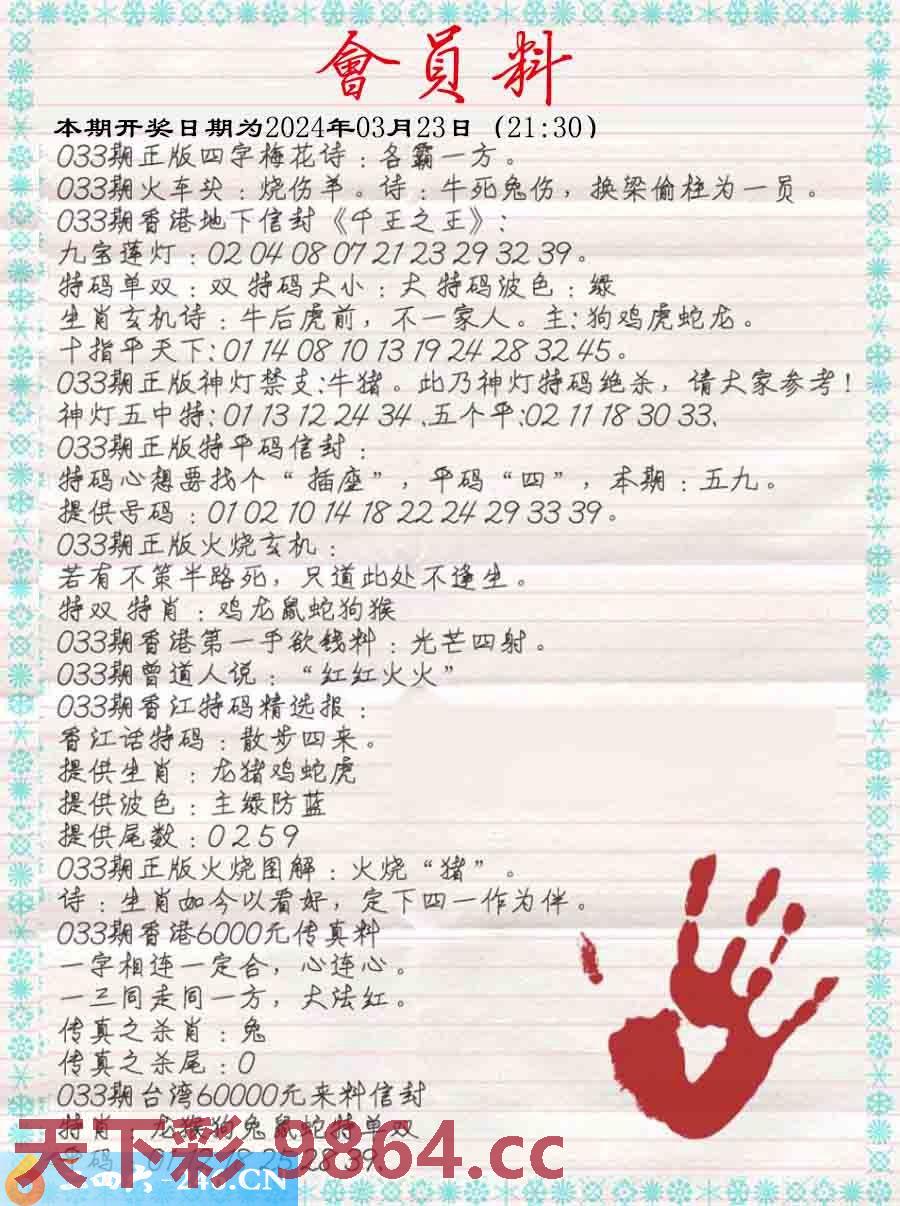 會員料
本期开奖日期为2024年03月23日（21:30）
033期正版四字梅花诗：各霸一方。
033期火车头：烧伤羊。诗：牛死兔伤，换梁偷柱为一员。
033期香港地下信封《千王之王》：
九宝莲灯：02 04 08 07 21 23 29 32 39。
特码单双：双 特码大小：大 特码波色：绿
生肖玄机诗：牛后虎前，不一家人。主：狗鸡虎蛇龙。
十指平天下：01 14 08 10 13 19 24 28 32 45。
033期正版神灯禁支：牛猪。此乃神灯特码绝杀，请大家参考！
神灯五中特：01 13 12 24 34 .五个平：02 11 18 30 33.
033期正版特平码信封：
特码心想要找个“插座”，平码“四”，本期：五九。
提供号码：01 02 10 14 18 22 24 29 33 39。
033期正版火烧玄机：
若有不策半路死，只道此处不逢生。
特双 特肖：鸡龙鼠蛇狗猴
033期香港第一手欲钱料：光芒四射。
033期曾道人说：“红红火火”
033期香江特码精选报：
香江话特码：散步四来。
提供生肖：龙猪鸡蛇虎
提供波色：主绿防蓝
提供尾数：0 2 5 9
033期正版火烧图解：火烧“猪”。
诗：生肖如今以看好，定下四一作为伴。
033期香港6000元传真料
一字相连一定合，心连心。
一三同走同一方，大法红。
传真之杀肖：兔
传真之杀尾：0
033期台湾60000元来料信封
特肖：龙猴狗兔鼠蛇特单双
天下彩-9864.cc
25 28 39.
246.CN